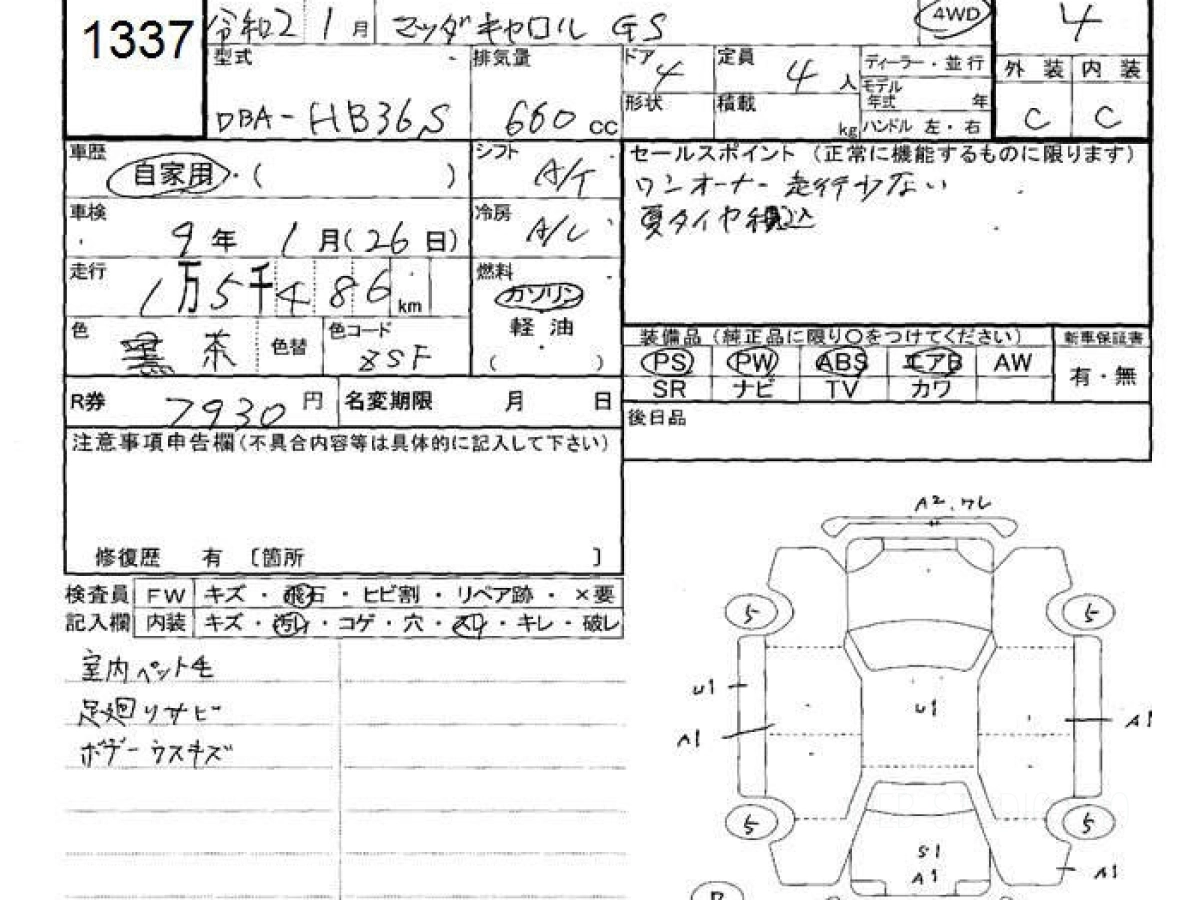 1337
令和2 1月 マツダキャロル GS 4WD 4
型式 排気量 ドア 4 定員 4 人 ディーラー・並行 外装 内装
DBA-HB36S 660 cc 形状 積載 kg モデル年式 年 C C
ハンドル 左・右
車歴 自家用・( ) シフト A/T
セールスポイント（正常に機能するものに限ります）
ワンオーナー 走行少ない
夏タイヤ積込
車検 9年 1月(26日) 冷房 A/C
走行 1万5千486km 燃料 ガソリン
軽油
( )
色 茶 色替 色コード ZSF
装備品（純正品に限り〇をつけてください） 新車保証書
PS PW ABS エアB AW 有・無
SR ナビ TV カワ
R券 7930円 名変期限 月 日
後日品
注意事項申告欄(不具合内容等は具体的に記入して下さい)
修復歴 有 〔箇所 ］
検査員 FW キズ・飛石・ヒビ割・リペア跡・×要
記入欄 内装 キズ・汚レ・コゲ・穴・スレ・キレ・破レ
室内ペット毛
足廻リサビ
ボデーウスキズ
A2.ワレ
5 5
U1 U1 A1
A1
5 5
S1
A1 A1
R